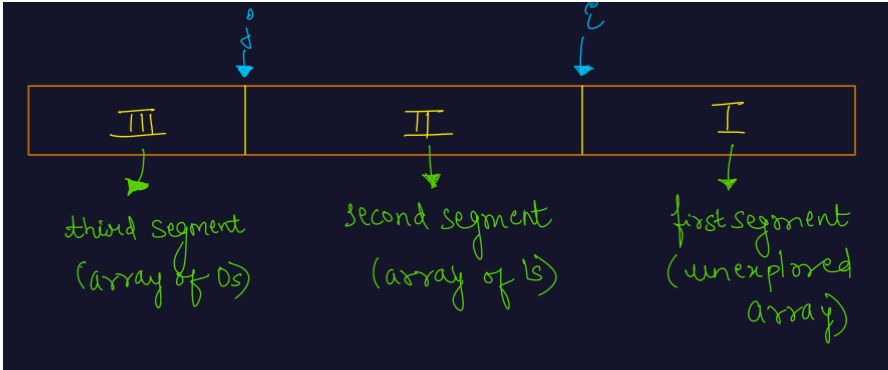 j
i
III
II
I
third segment
(array of 0s)
second segment
(array of 1s)
first segment
(unexplored
array)